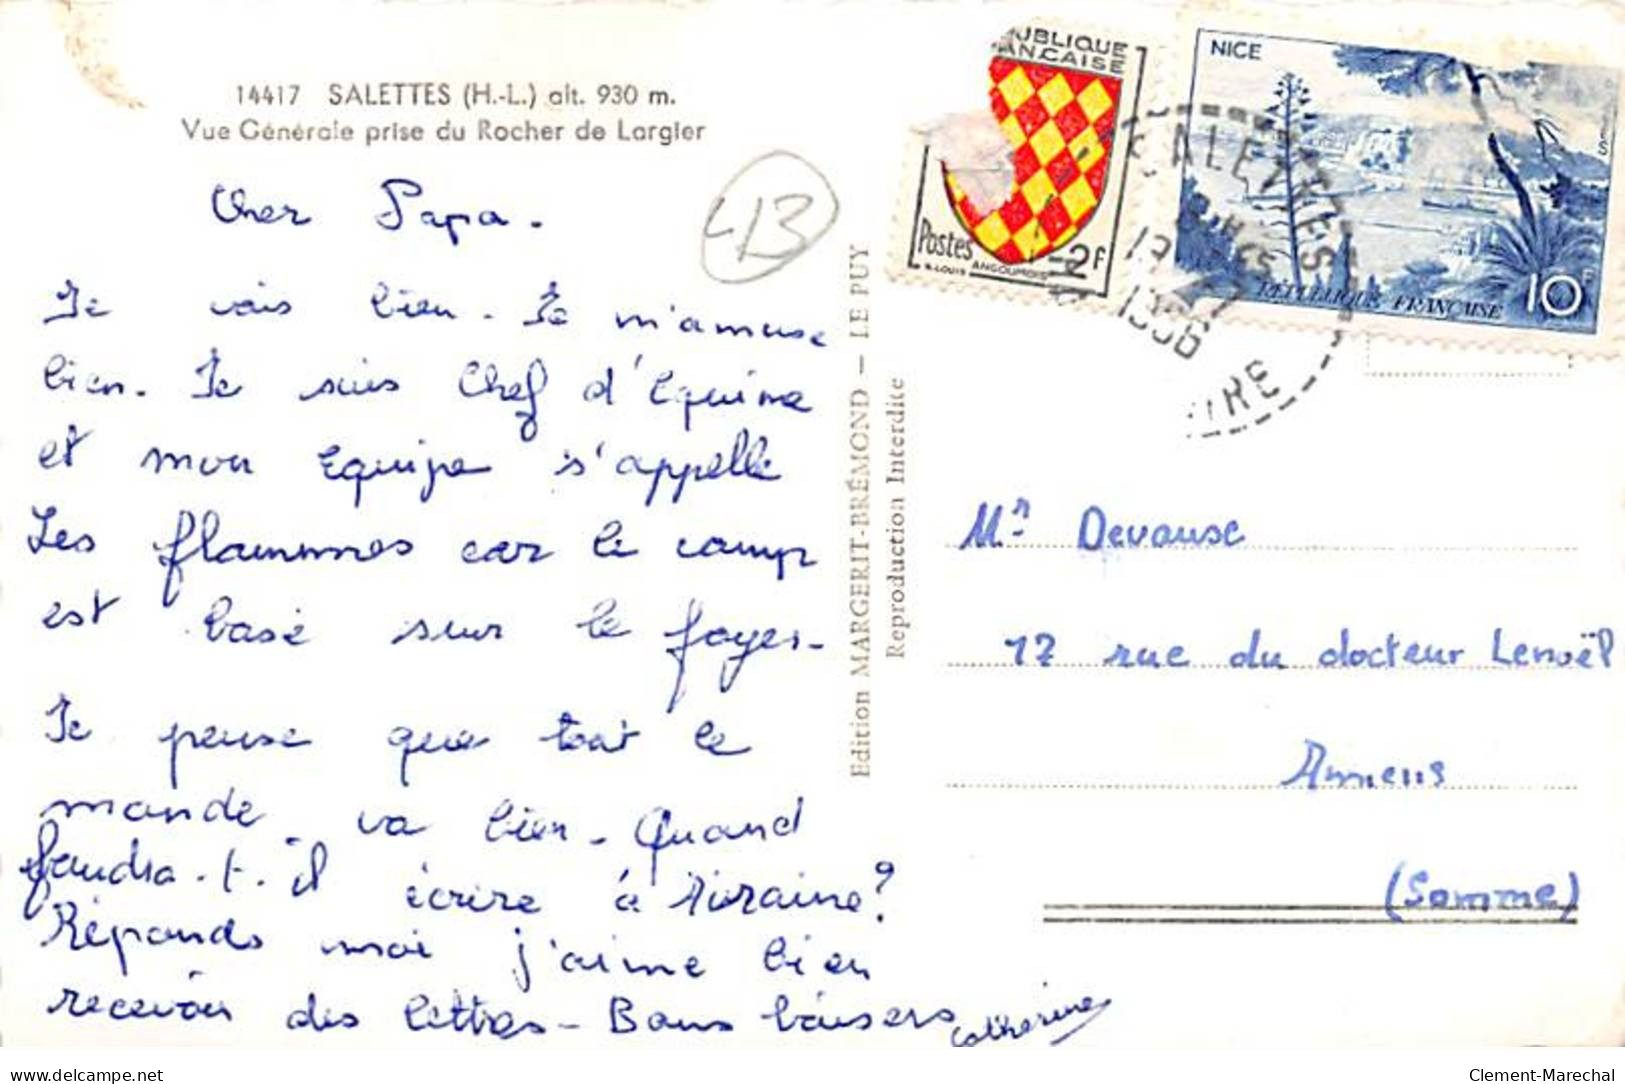 14417 SALETTES (H.-L.) alt. 930 m.
Vue Générale prise du Rocher de Largier
43
Cher Papa.
Je vais bien. Je m'amuse
bien. Je suis Chef d'Equipe
et mon Equipe s'appelle
Les flammmes car le camp
est basé sur le foyer.
Je pense que tout le
monde va bien. Quand
faudra-t-il écrire à Moraine?
Réponds moi j'aime bien
recevoir des lettres - Bons baisers
Catherine
Edition MARGERIT-BRÉMOND — LE PUY
Reproduction Interdite
RÉPUBLIQUE
FRANÇAISE
Postes 2F
ANGOUMOIS
NICE
RÉPUBLIQUE FRANÇAISE 10F
1956
Mr Devause
17 rue du docteur Lenoël
Amiens
(Somme)
Clement-Marechal